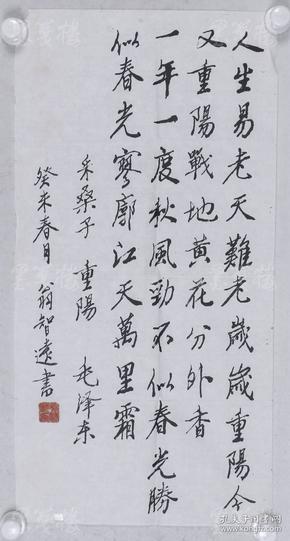 人生易老天難老歲歲重陽今
又重陽戰地黃花分外香
一年一度秋風勁不似春光勝
似春光寥廓江天萬里霜
采桑子 重陽 毛澤东
癸未春月 翁智遠書
孔夫子旧书网